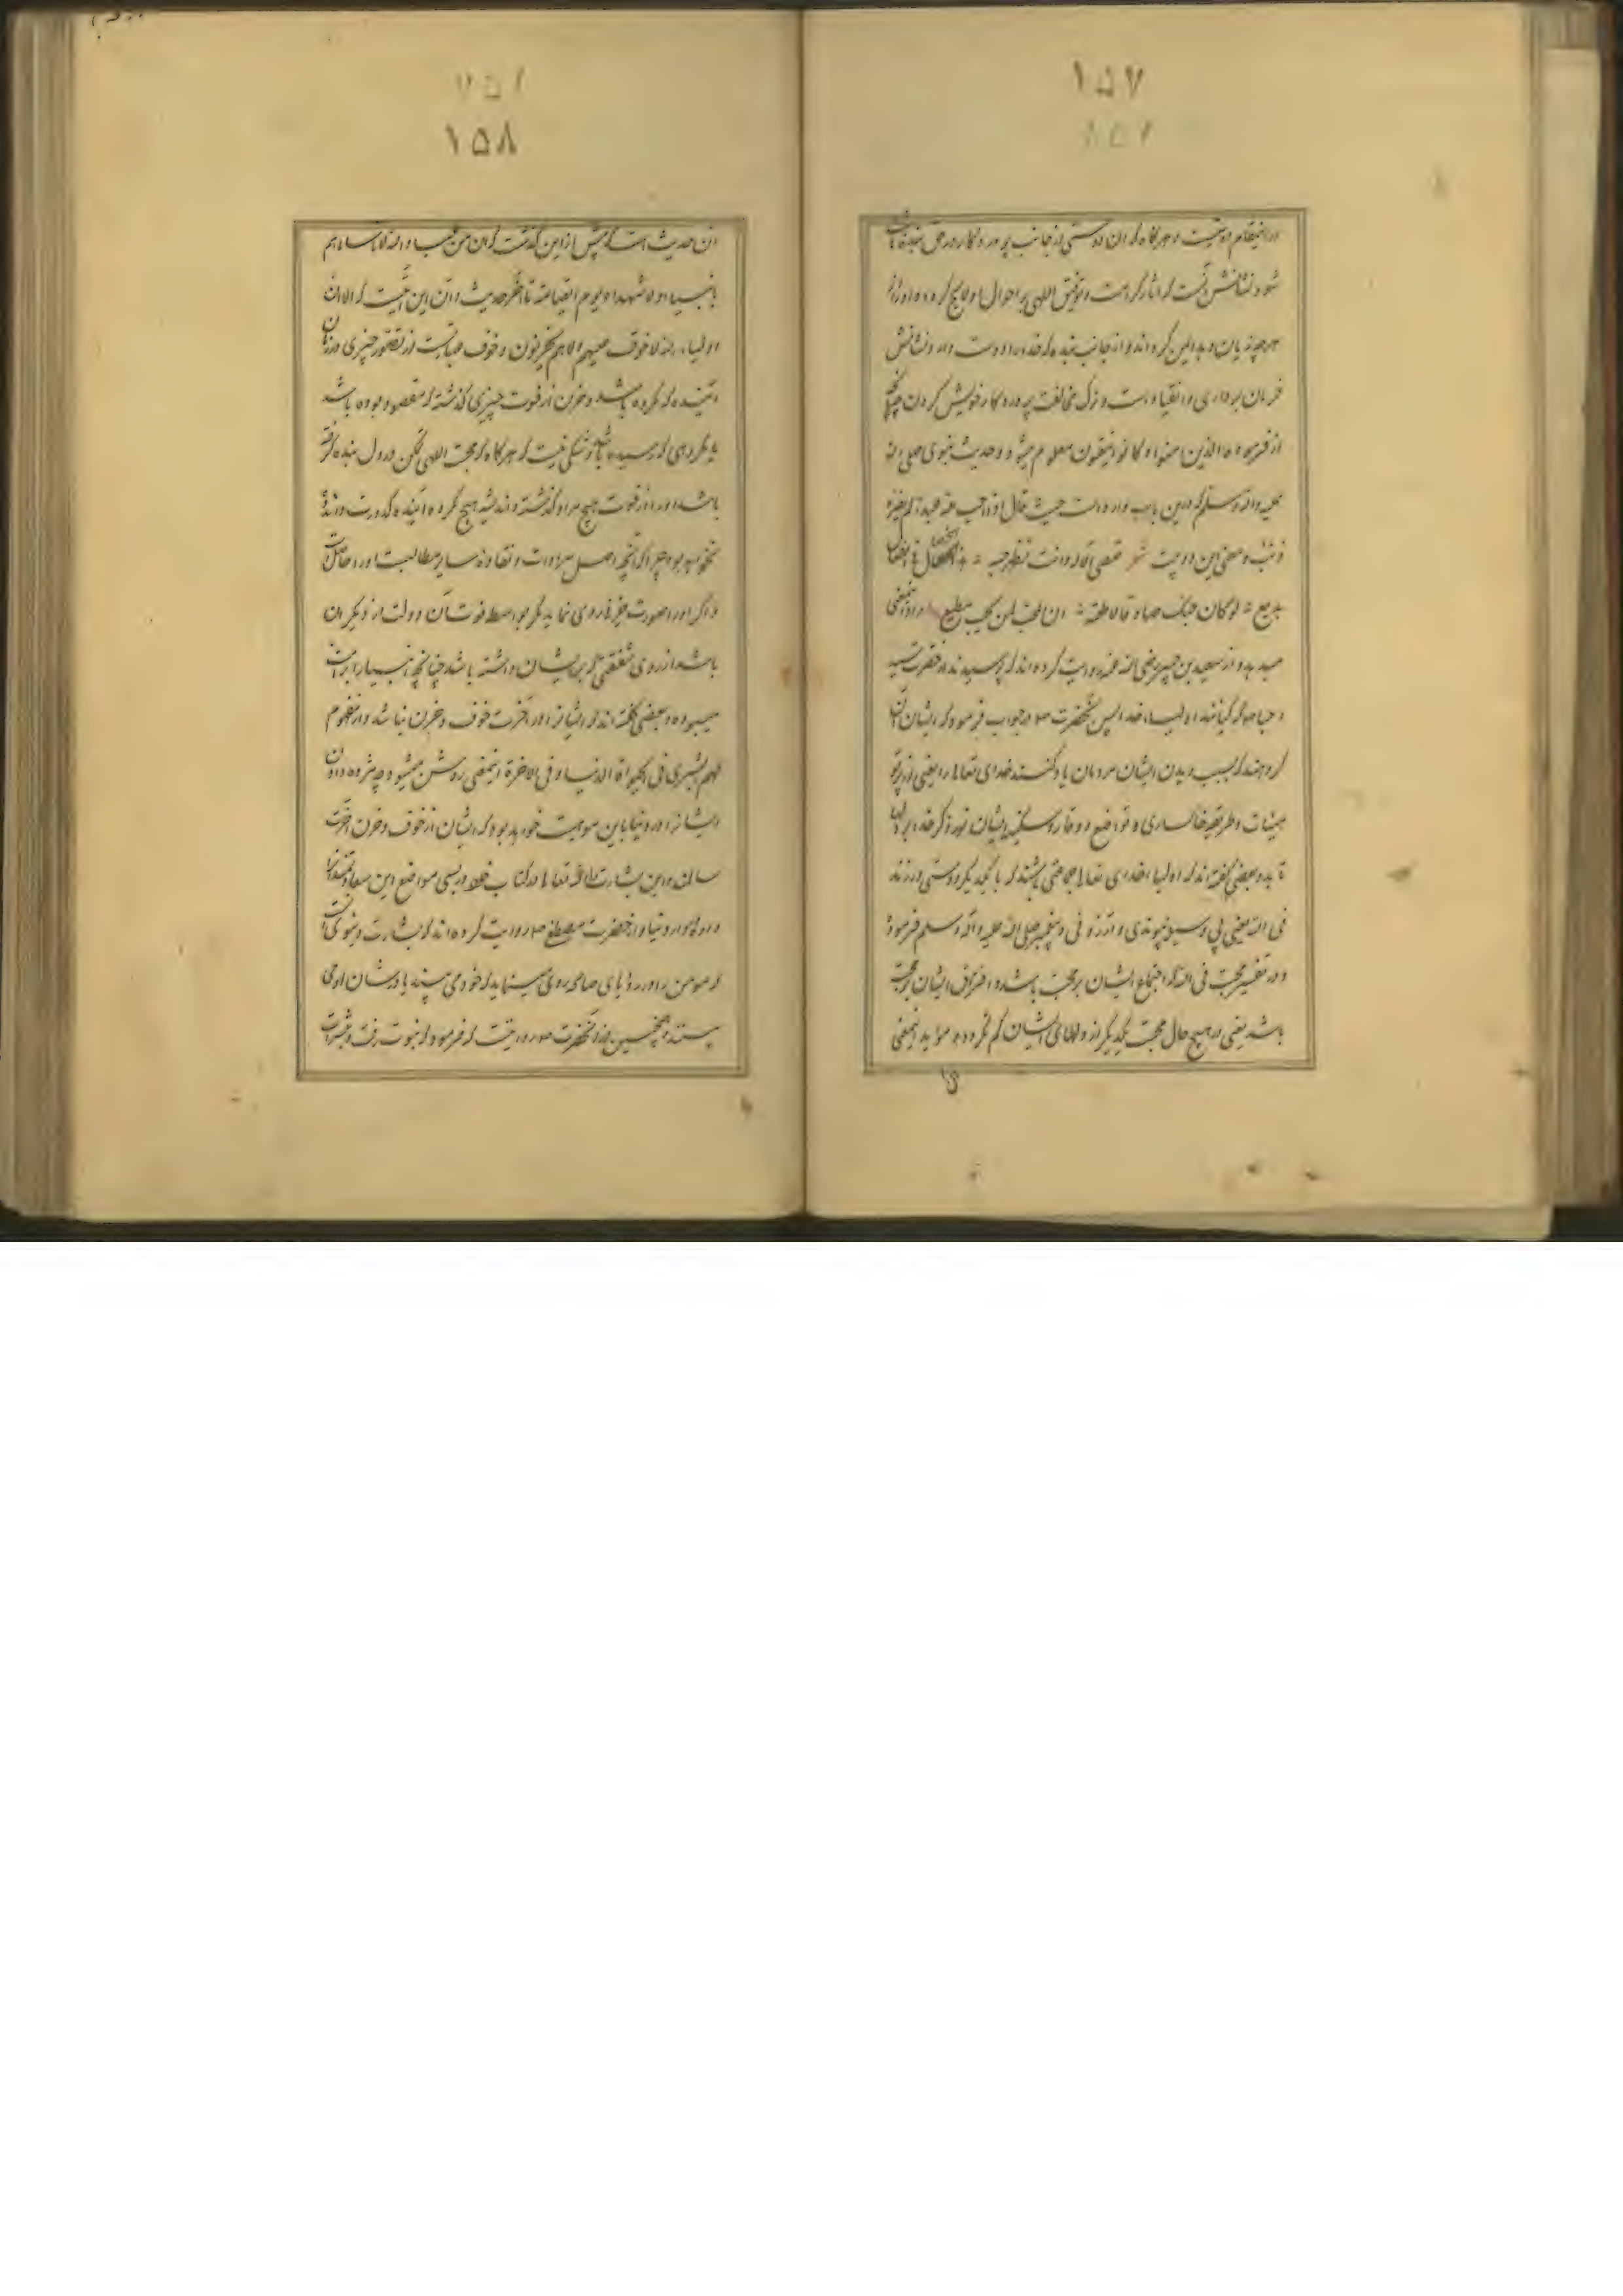 ١٥٧
در اینمقام دوستیست و هرگاه که آن دوستی از جانب پروردگار در حق بنده ثابت
شود نشانش آنست که آثار کرامت و توفیق الهی بر احوال او لایح گردد و او را از
هر چه زیان وی در این گرداند و از جانب بنده که خدا را دوست دارد نشانش
فرمان برداری و انقیاد است و ترک مخالفت پروردگار خویش کردن چنانچه
از فرموده الذین امنوا و کانوا یتقون معلوم میشود و حدیث نبوی صلی الله
علیه و اله و سلم که درین باب وارد است حیث قال اذا احب الله عبدا لم یضره
ذنب و معنی این دو بیت شعر تعصی الاله و انت تظهر حبه = هذا محال فی الفعال
بدیع = لو کان حبک صادقا لاطعته = ان المحب لمن یحب مطیع ادا اینمعنی
میدهد و از سعید بن جبیر رضی الله عنه روایت کرده اند که پرسیدند از حضرت رسید
که کیانند اولیاء خدا پس آنحضرت در جواب فرمود که ایشان آن
گروهند که بسبب دیدن ایشان مردمان یاد کنند خدای تعالی را یعنی از پرتو
هیئات و طریقه خاکساری و تواضع و وقار و سکینه ایشان نور ذکر خدا بر دلها
تابد و بعضی گفته اند که اولیاء خدای تعالی جماعتی باشند که با یکدیگر دوستی ورزند
فی الله یعنی بی وسیله پیوندی و آرزو فی و پیغمبر صلی الله علیه و اله و سلم فرموده
و در تفسیر محبت فی الله که اجتماع ایشان بر محبت باشد و افتراق ایشان بر محبت
باشد یعنی در هیچ حال محبت یکدیگر از دلهای ایشان کم نگردد و موید اینمعنی
١٥٨
آن حدیث است که پیش از این گذشت که ان من عباد الله لاناسا ما هم
بانبیاء و لا شهداء و یوم القیامة تا آخر حدیث و آن این آیتست که الا ان
اولیاء الله لا خوف علیهم و لا هم یحزنون و خوف عبارتست از تصور چیزی در زمان
آینده که مکروه باشد و حزن از فوت چیزی گذشته که مقصود بوده باشد
یا مکروهی که رسیده باشد و شکی نیست که هرگاه که محبت الهی تمکن در دل بنده گرفته
باشد او را از فوت هیچ مراد گذشته و اندیشه هیچ مکروه آینده کدورت و اندوه
نخواهد بود چرا که آنچه اصل مرادات و نقاوه سایر مطالبست او را حاصلست
و اگر او را بصورت حزنی روی نماید مگر بواسطه فوت آن دولت از دیگران
باشد از روی شفقتی که بر ایشان داشته باشد چنانچه انبیا را بر امت
میبوده و بعضی گفته اند که ایشانرا در آخرت خوف و حزن نباشد و از مفهوم
لهم البشری فی الحیوة الدنیا و فی الاخرة اینمعنی روشن میشود چه مژده دادن
ایشانرا در دنیا باین موهبت خواهد بود که ایشان از خوف و حزن آخرت
سالمند و این بشارت را الله تعالی در کتاب خود در بسی مواضع این سعادتمندانرا
داده و در دنیا و از حضرت مصطفی روایت کرده اند که بشارت دنیوی آنست
که مومن را در رؤیای صالحه روی مینماید که خود می بیند یا در شان او می
بینند و همچنین از آنحضرت مرویست که فرمود که نبوت رفت و مبشرات